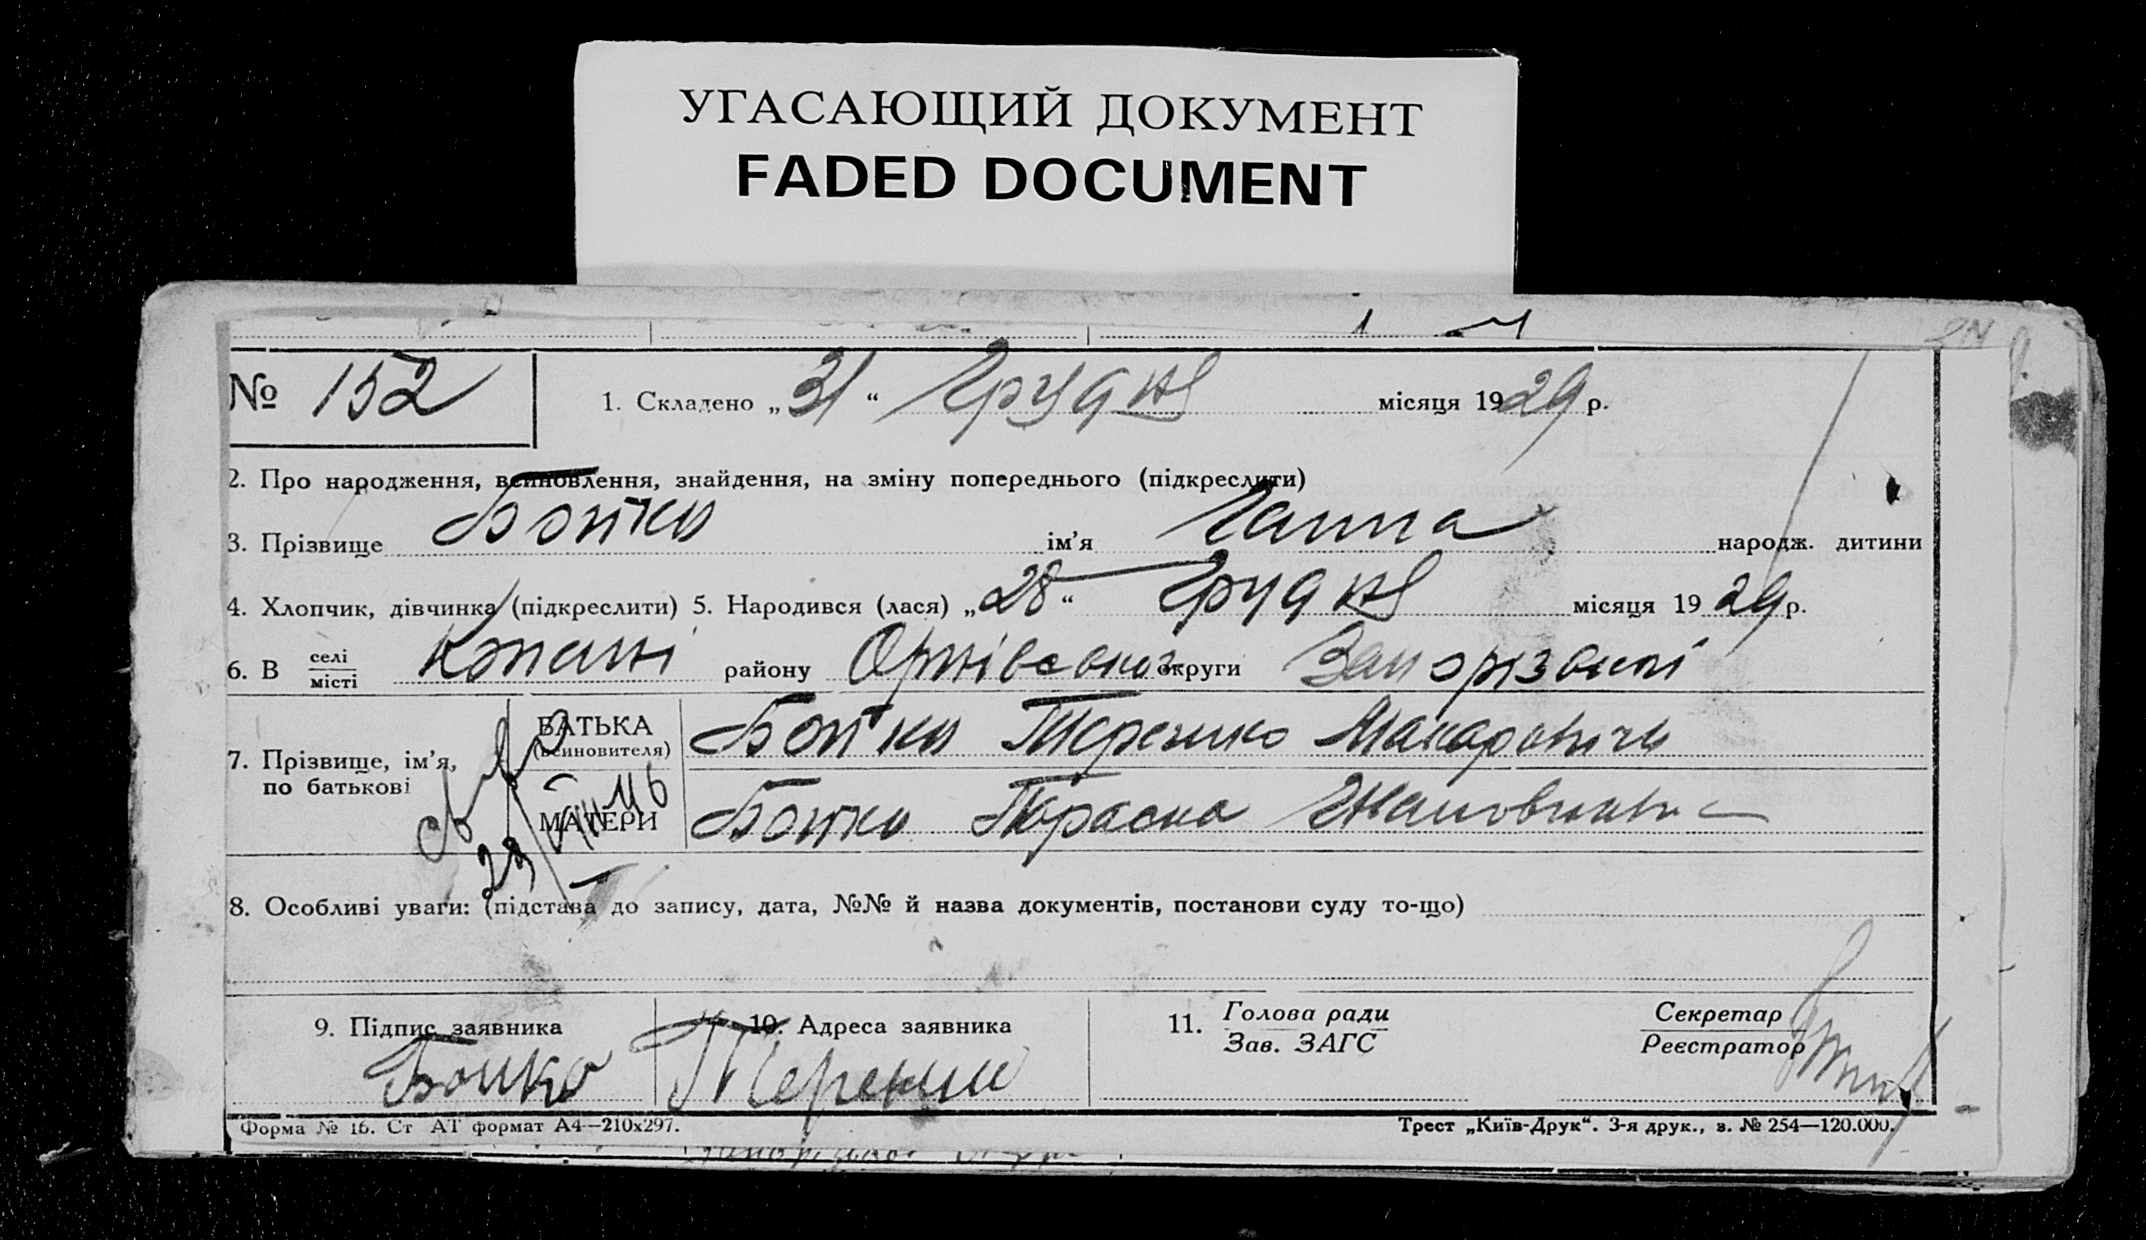 УГАСАЮЩИЙ ДОКУМЕНТ
FADED DOCUMENT
№ 152
1. Складено „31“ Грудня місяця 1929 р.
2. Про народження, всиновлення, знайдення, на зміну попереднього (підкреслити)
3. Прізвище Бойко ім’я Ганна народж. дитини
4. Хлопчик, дівчинка (підкреслити) 5. Народився (лася) „28“ Грудня місяця 1929 р.
6. В селі місті Копані району Оріхівсько округи Запорізької
7. Прізвище, ім’я, по батькові
БАТЬКА (всиновителя) Бойко Терешко Макарович
МАТЕРИ Бойко Параска
8. Особливі уваги: (підстава до запису, дата, №№ й назва документів, постанови суду то-що)
9. Підпис заявника
Бойко
10. Адреса заявника
11. Голова ради
Зав. ЗАГС
Секретар
Реєстратор
Форма № 16. Ст АТ формат А4—210х297.
Трест „Київ-Друк“. 3-я друк., з. № 254—120.000.